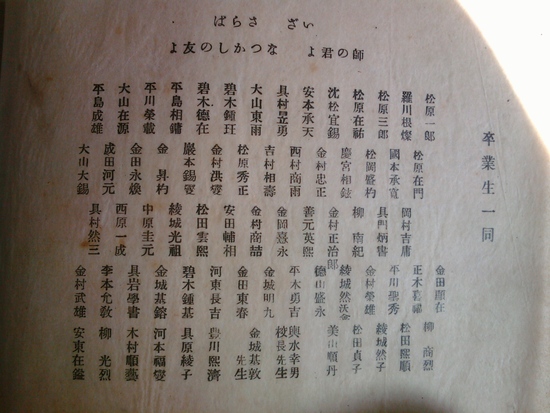 いざ さらば
師の君よ なつかしの友よ
卒業生一同
松原一郎
羅川根燦
松原三郎
松原在祐
沈松宜錫
安本承天
具村昱勇
大山東雨
碧木鍾玨
碧木德在
平島相鏞
平川榮載
大山在源
平島成雄
松原在門
國本承寬
松岡盛杓
慶宮相鉉
金村忠正
西村商雨
吉村相壽
松原秀正
金村洪燮
巖本錫燮
金昇杓
金田永煥
成田河元
大山大錫
岡村吉庸
具門炳書
柳南紀
金村正治郎
善元英熙
金岡喜永
金村商喆
安田輔相
松田雲熙
綾城光祖
中原圭元
西原一成
具村然三
金田顯在
正木喜福
平川聖秀
金村榮雄
綾城然
德山盛永
平木勇吉
金城明九
金田東春
河東長吉
碧木鍾基
金城基鎔
具岩學書
李本允敎
金村武雄
柳商烈
松田熙順
綾城然子
松田貞子
美山順丹
輿水幸男
校長先生
金城基敦
先生
豊川熙濟
具原綾子
河本福燮
木村順藝
柳光烈
安東在鎰